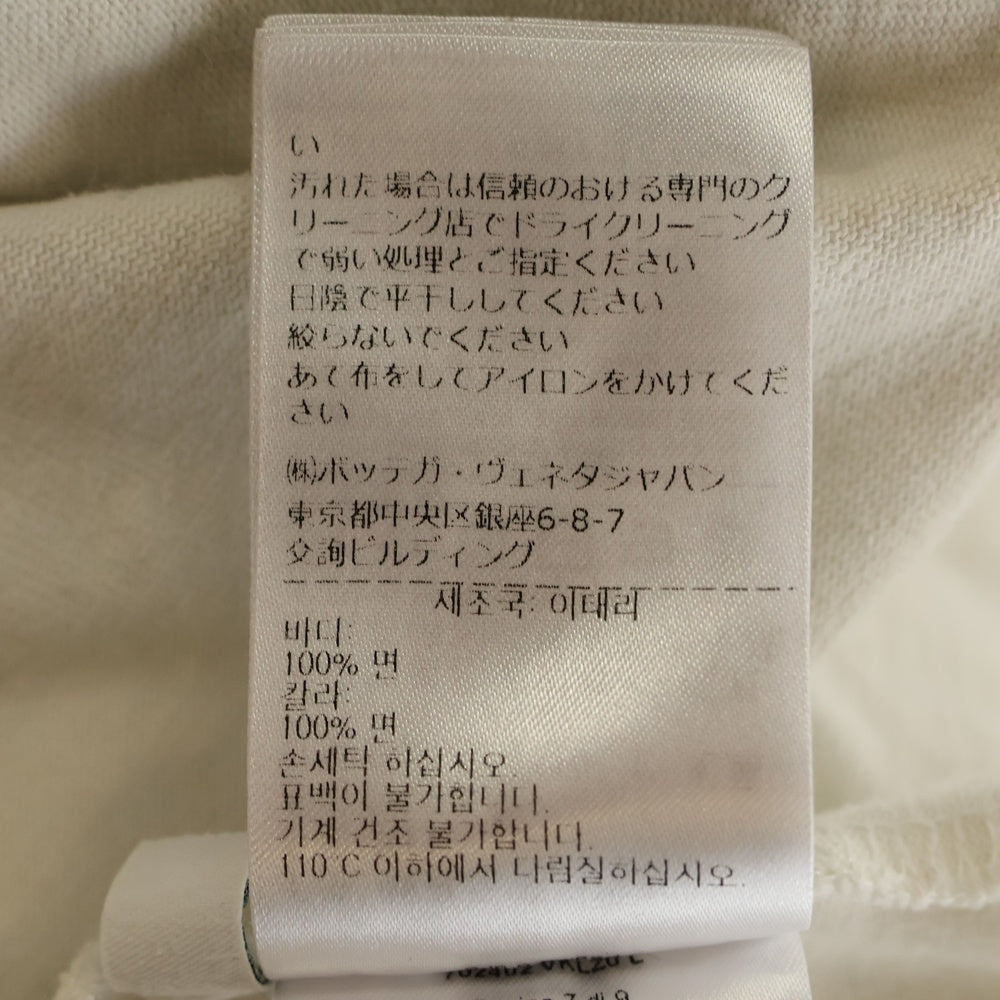 い
汚れた場合は信頼のおける専門のク
リーニング店でドライクリーニング
で弱い処理とご指定ください
日陰で平干ししてください
絞らないでください
あて布をしてアイロンをかけてくだ
さい
㈱ボッテガ・ヴェネタジャパン
東京都中央区銀座6-8-7
交詢ビルディング
제조국: 이태리
바디:
100% 면
칼라:
100% 면
손세탁 하십시오.
표백이 불가합니다.
기계 건조 불가합니다.
110°C 이하에서 다림질하십시오.